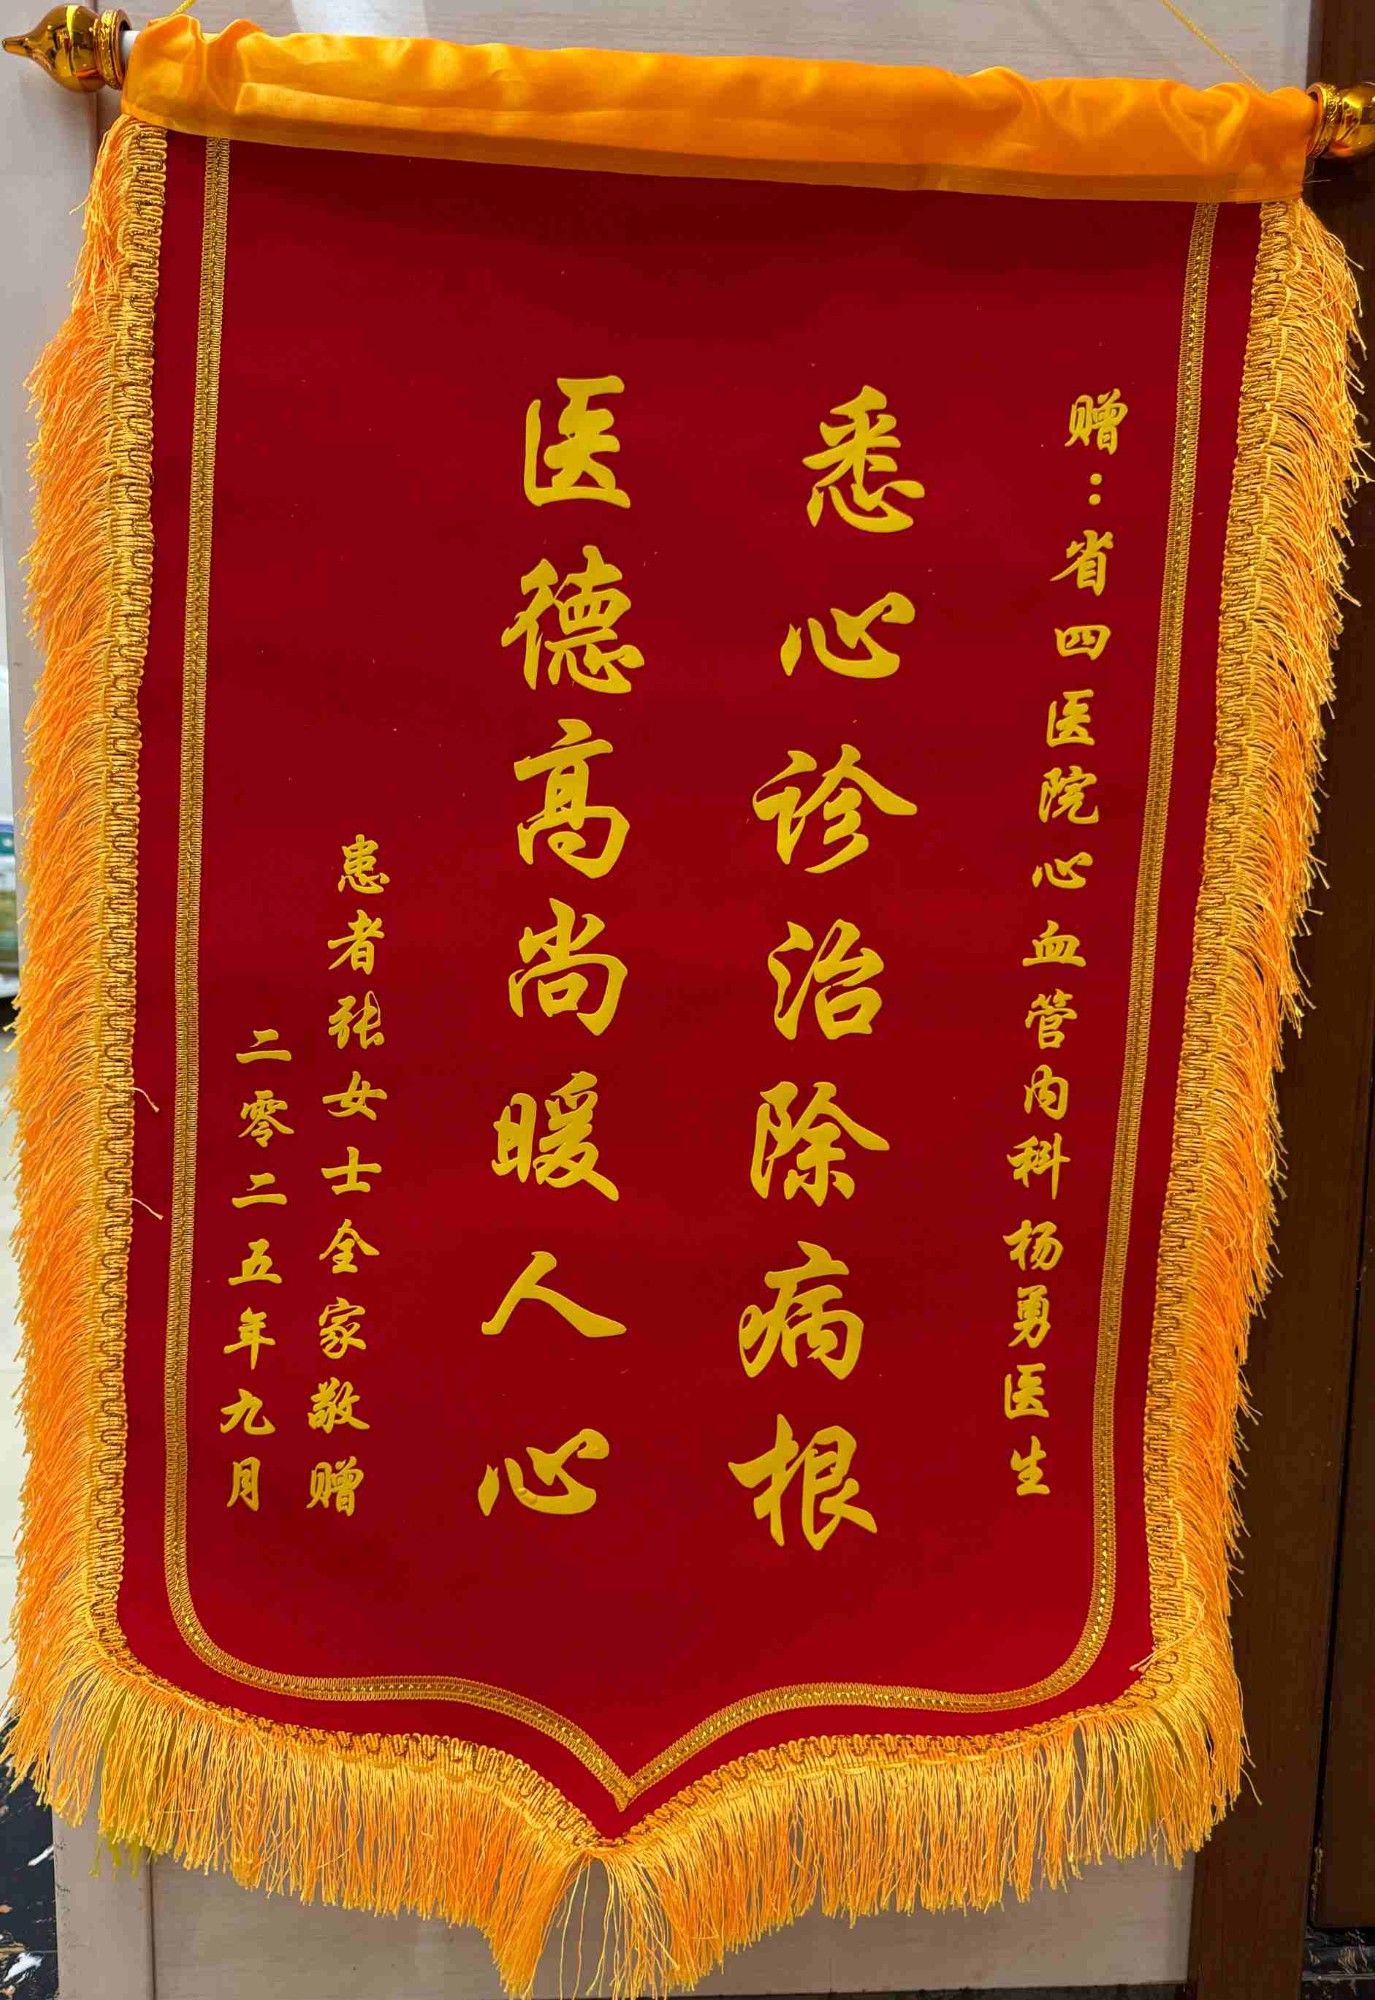 赠：省四医院心血管内科杨勇医生
悉心诊治除病根
医德高尚暖人心
患者张女士全家敬赠
二零二五年九月